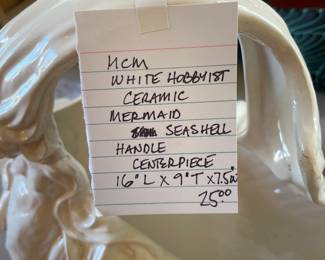 MCM
WHITE HOBBYIST
CERAMIC
MERMAID
SEASHELL
HANDLE
CENTERPIECE
16" L X 9" T X 7.5" W
25.00